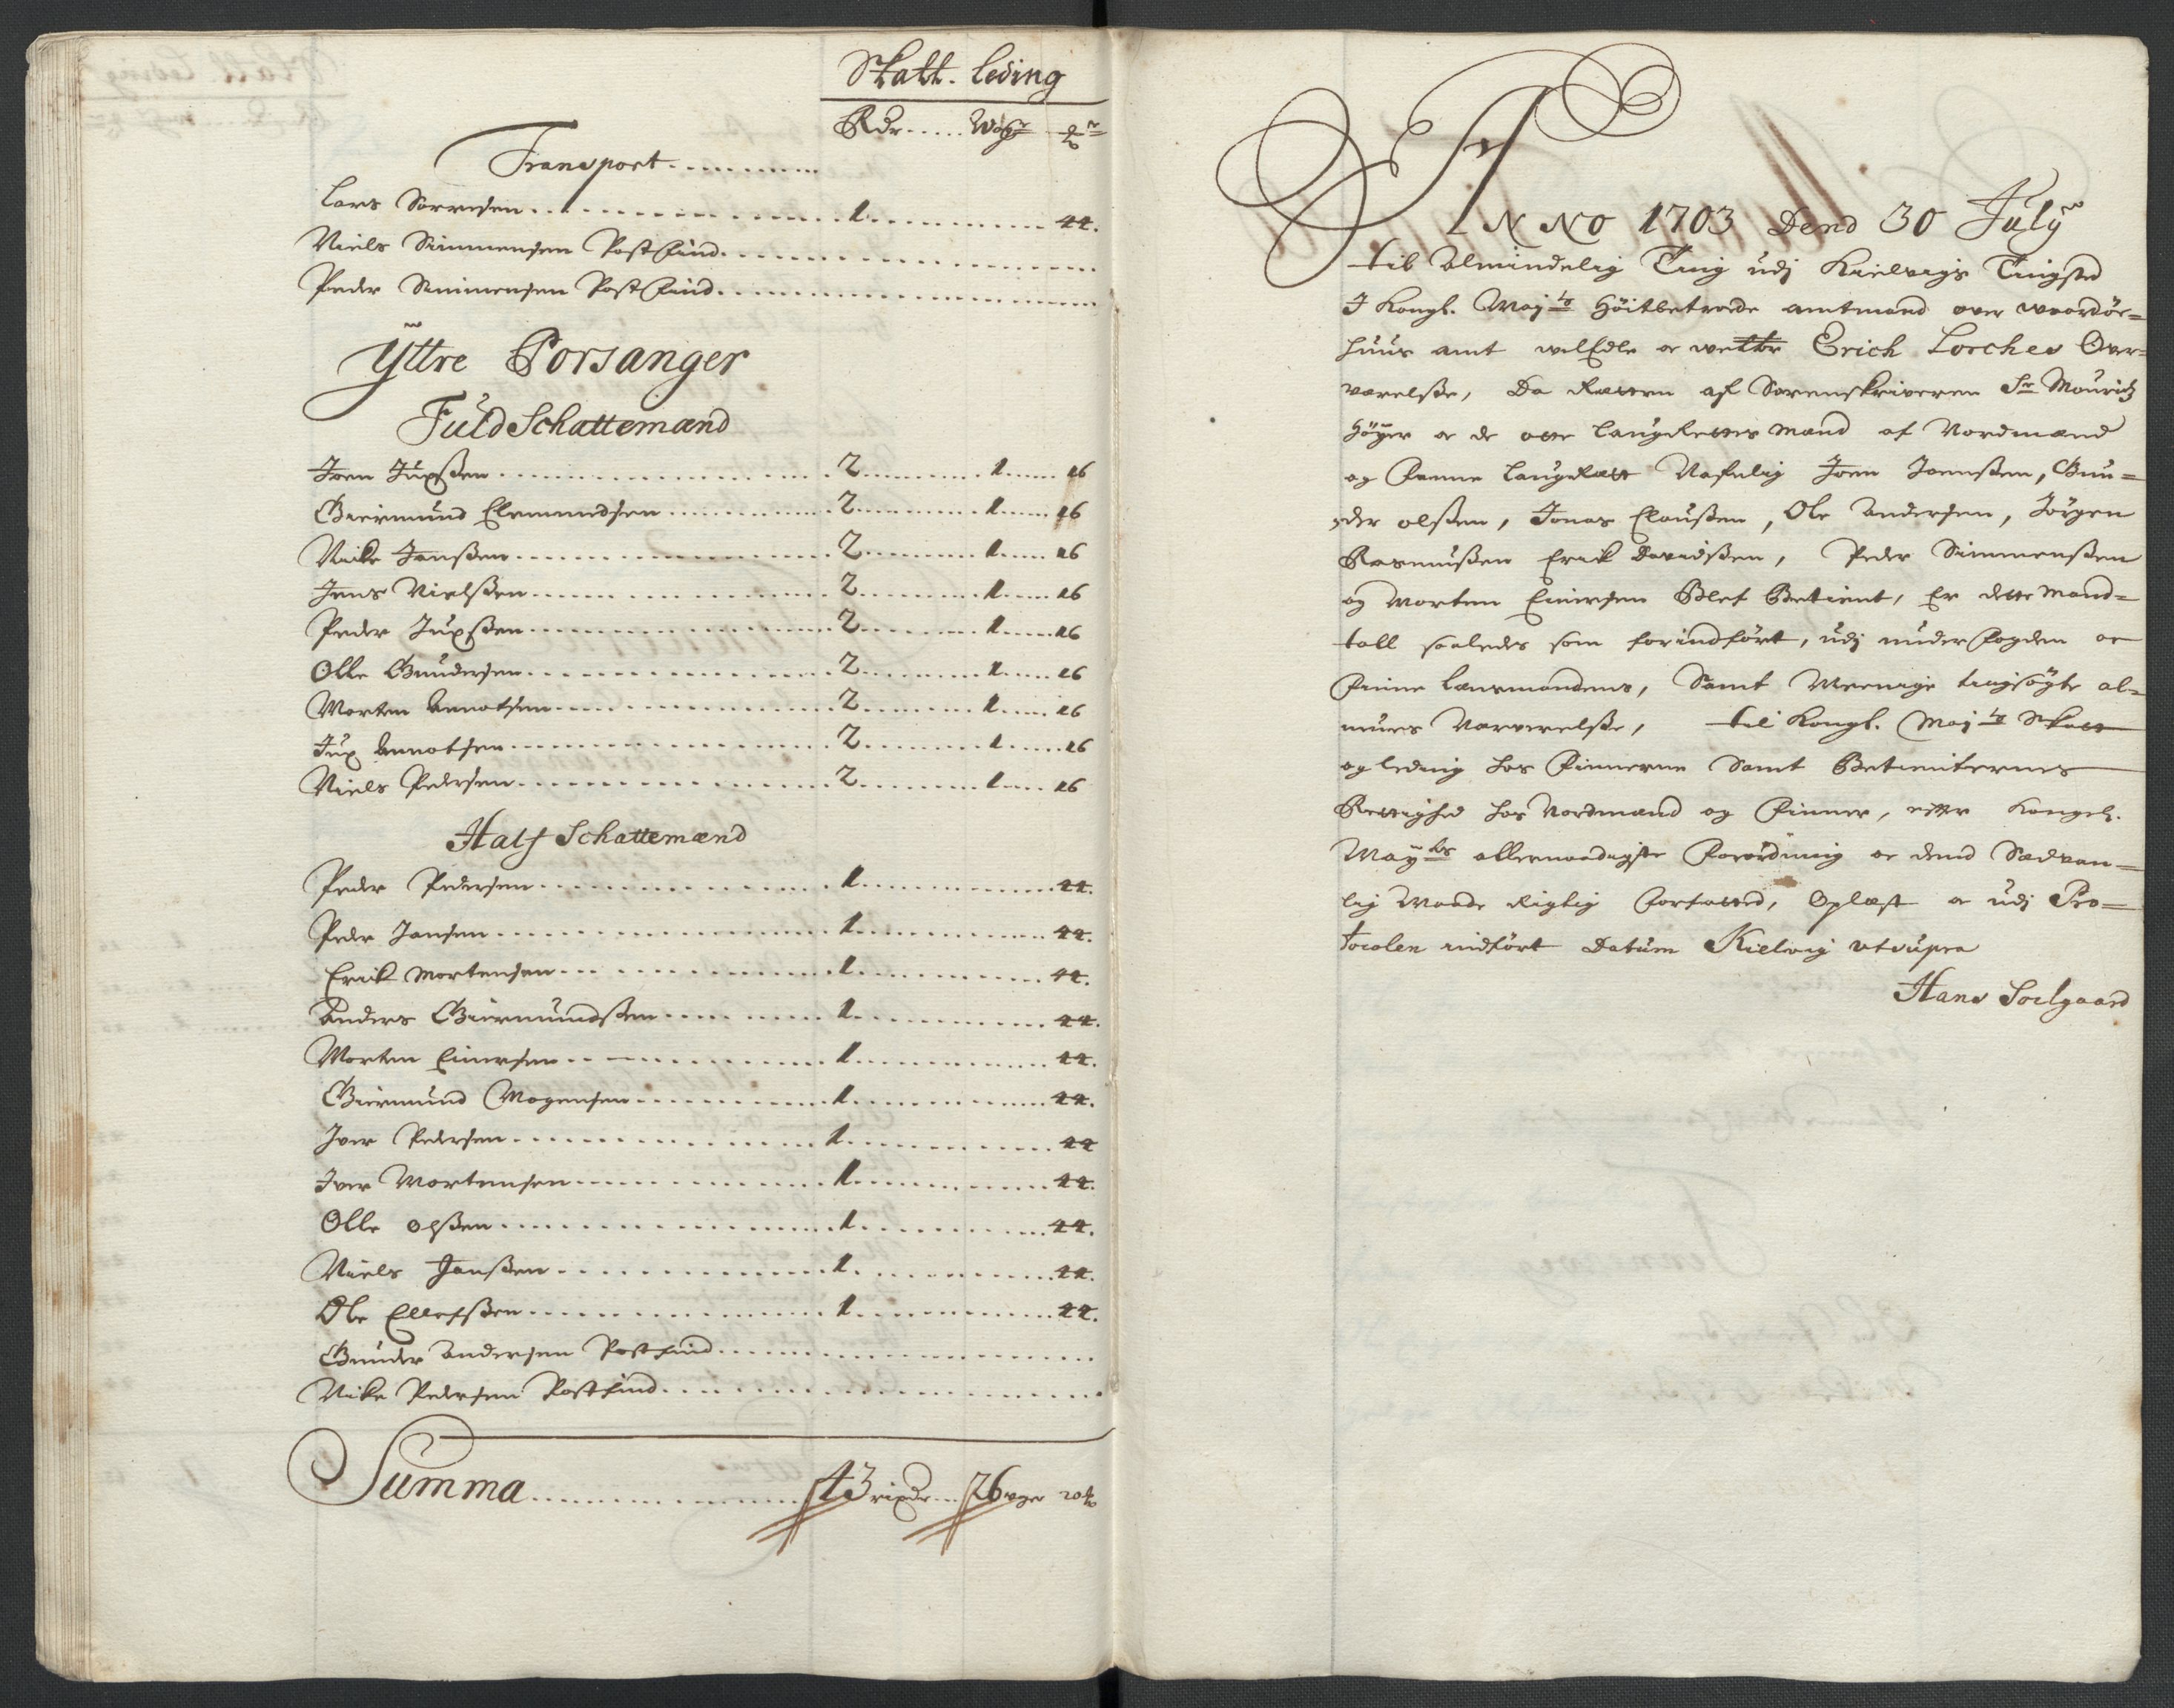 Skatt. leding
Rdr..... Woger
Transport...........
Lars Sørresen............1............44.
Niels Simmensen Postfind..........
Peder Simmensen Postfind..........
Yttre Porsanger
Fuld Schattemænd
Joen Jupßen............2............1......16
Giermund Clemmendsen............2............1......16
Nicke Jonßen............2............1......16
Jens Nielsßen............2............1......16
Peder Jupßen............2............1......16
Olle Gundersen............2............1......16
Morten Annotsen............2............1......16
Jup Annotsen............2............1......16
Niels Pedersen............2............1......16
Half Schattemænd
Peder Pedersen............1............44.
Peder Jonsen............1............44.
Erik Mortensen............1............44.
Anders Giermundßen............1............44.
Morten Einersen............1............44.
Giermund Mogensen............1............44.
Iver Pedersen............1............44
Iver Mortensen............1............44.
Olle Olßen............1............44.
Niels Jonßen............1............44.
Ole Ellefßen............1............44.
Gunder Andersen Postfind..........
Nicke Pedersen Postfind..........
Summa............43 rixdr...26 woger 20
ANNO 1703 Dend 30 July
til Almindelig Ting udj Kielvigs Tingsted
J Kongl. Maj:ts Höitbetroede amtmand over Waardöe=
huus amt welEdle oc Erich Lorches Over=
værelße, Da Rætten af Sorenskriveren Sr Mouritz
Höyer oc de otte laugRettes Mænd af Nordmænd
og Finne laugRætt Nafnlig Joen Joenßen, Gun=
der Olßen, Jonas Claußen, Ole Andersen, Jörgen
Rasmußen Erik Davidßen, Peder Simmenßen
og Morten Einersen Blef Betient, Er dette Mand=
tall saaledes som forindfört, udj underfogden oc
Finne Lænsmandens, Samt Meenige tingsögte al=
mues Nærverelße, til Kongl. Maj:ts Skatt
og leding hos Finnerne Samt Betienternes
Rettighed hos Nordmænd og Finner, efter Kongel.
May:ts allernaadigste Forordning oc dend Sædvan=
lig Maade Rigtig forfatted, Oplæst oc udj Pro=
tocolen indfört Datum Kielvig ut supra
Hans Soelgaard